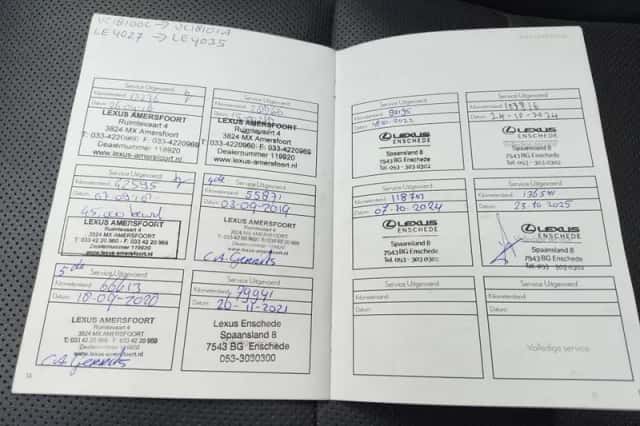 LE4027 → LE4035
Service Uitgevoerd
Kilometerstand:
Datum:
LEXUS AMERSFOORT
Ruimtevaart 4
3824 MX Amersfoort
T: 033-4220960 F: 033-4220969
Dealernummer 119920
www.lexus-amersfoort.nl
Service Uitgevoerd
Kilometerstand:
Datum:
LEXUS AMERSFOORT
Ruimtevaart 4
3824 MX Amersfoort
T: 033-4220960 F: 033-4220969
Dealernummer 119920
www.lexus-amersfoort.nl
Service Uitgevoerd
Kilometerstand: 42595
Datum:
45.000 beurt
LEXUS AMERSFOORT
Ruimtevaart 4
3824 MX AMERSFOORT
T: 033 42 20 960 F: 033 42 20 969
www.lexus-amersfoort.nl
4de
Service Uitgevoerd
Kilometerstand: 55871
Datum: 03-09-2019
LEXUS AMERSFOORT
Ruimtevaart 4
3824 MX AMERSFOORT
T: 033 42 20 960 F: 033 42 20 969
www.lexus-amersfoort.nl
C.A. Gerrits
5de
Service Uitgevoerd
Kilometerstand: 66613
Datum: 10-09-2020
LEXUS AMERSFOORT
Ruimtevaart 4
3824 MX AMERSFOORT
T: 033 42 20 960 F: 033 42 20 969
www.lexus-amersfoort.nl
C.A. Gerrits
Service Uitgevoerd
Kilometerstand: 79941
Datum: 26-11-2021
Lexus Enschede
Spaansland 8
7543 BG Enschede
053-3030300
Service Uitgevoerd
Kilometerstand:
Datum:
LEXUS
ENSCHEDE
Spaansland 8
7543 BG Enschede
Tel. 053 - 303 0302
Service Uitgevoerd
Kilometerstand:
Datum:
LEXUS
ENSCHEDE
Spaansland 8
7543 BG Enschede
Tel. 053 - 303 0302
Service Uitgevoerd
Kilometerstand:
Datum: 07-10-2024
LEXUS
ENSCHEDE
Spaansland 8
7543 BG Enschede
Tel. 053 - 303 0302
Service Uitgevoerd
Kilometerstand:
Datum: 23-10-2025
LEXUS
ENSCHEDE
Spaansland 8
7543 BG Enschede
Tel. 053 - 303 0302
Service Uitgevoerd
Kilometerstand:
Datum:
Service Uitgevoerd
Kilometerstand:
Datum:
Volledige service